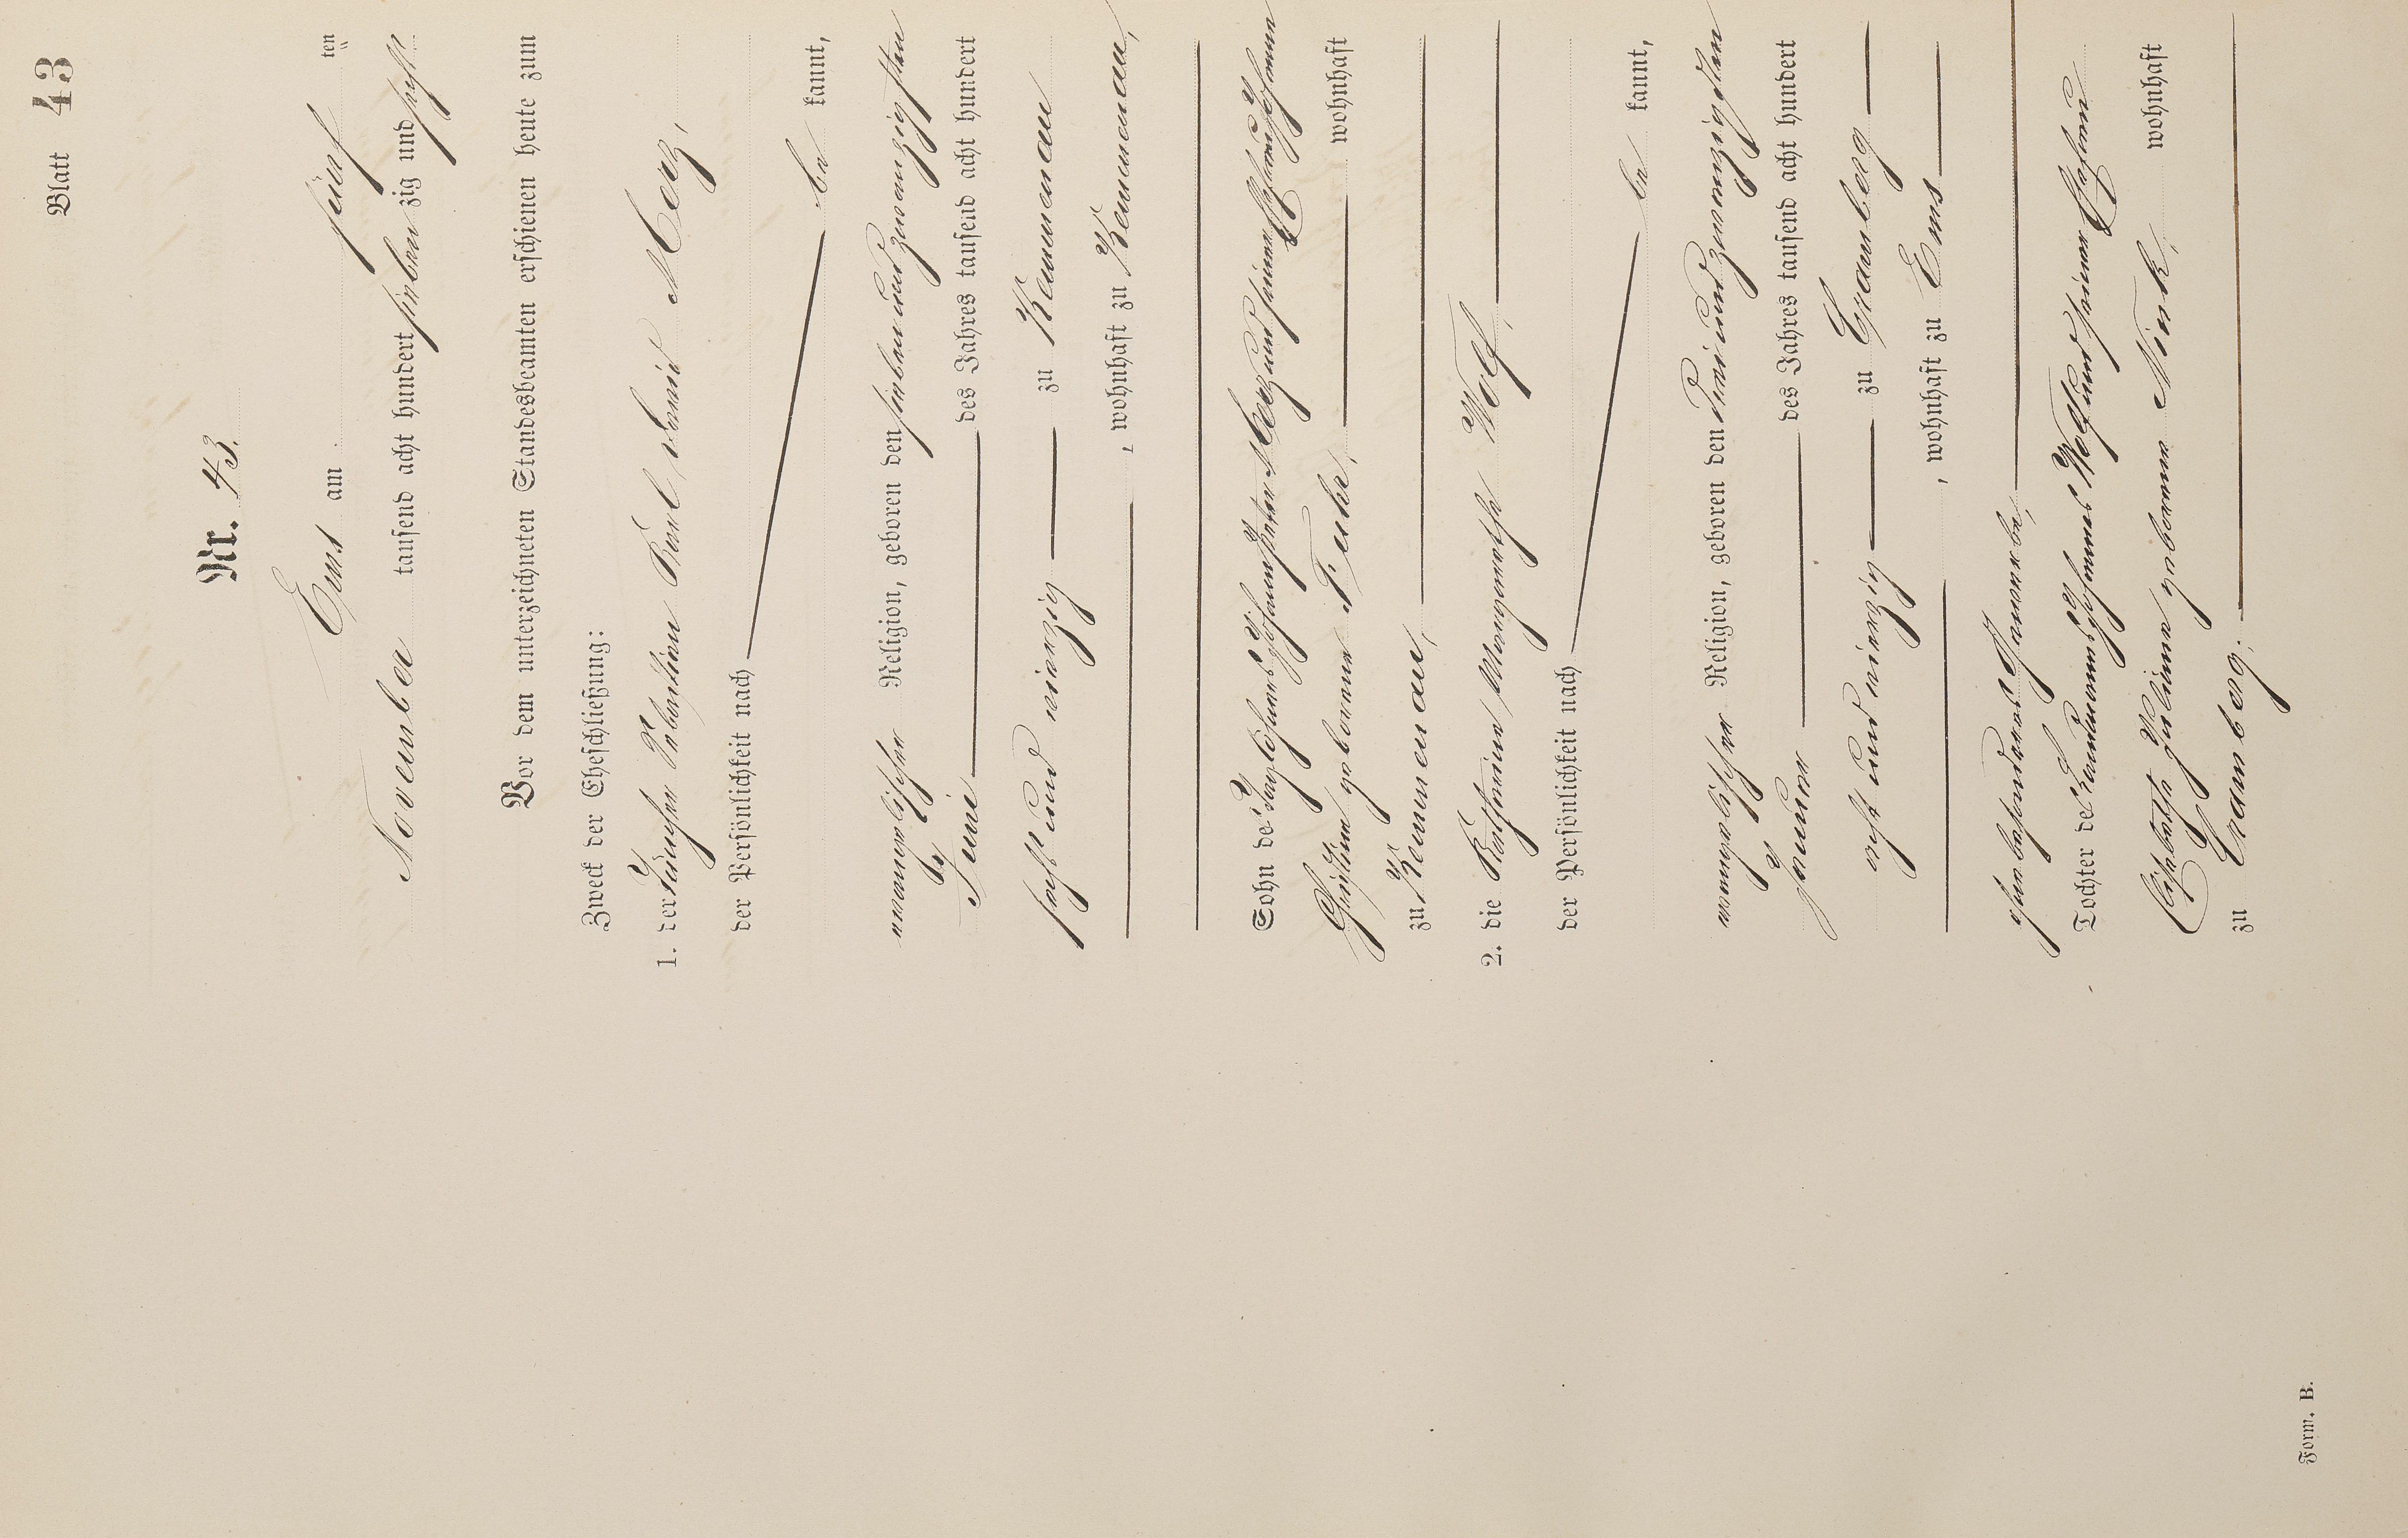 Blatt 43
Nr. 43.
Ems am fünf ten
November tausend acht hundert sieben zig und sechs
Vor dem unterzeichneten Standesbeamten erschienen heute zum
Zweck der Eheschließung:
1. der Tüncher Sebastian Karl David Merz,
der Persönlichkeit nach
be kannt,
evangelischer Religion, geboren den siebenundzwanzigsten
Juni des Jahres tausend acht hundert
sechs und vierzig zu Kemmenau
, wohnhaft zu Kemmenau,
Sohn des Taglöhners Johann Peter Merz und seiner Ehefrau Johanna
Christine geborene Fuhr, wohnhaft
zu Kemmenau,
2. die Katharine Margarethe Wolf,
der Persönlichkeit nach
be kannt,
evangelischer Religion, geboren den dreiundzwanzigsten
Januar des Jahres tausend acht hundert
acht und vierzig zu Cramberg
, wohnhaft zu Ems
ohne besonderes Gewerbe,
Tochter des Landmanns Johannes Wolf und seiner Ehefrau
Elisabethe Juliane geborene Nink, wohnhaft
zu Cramberg.
Form. B.